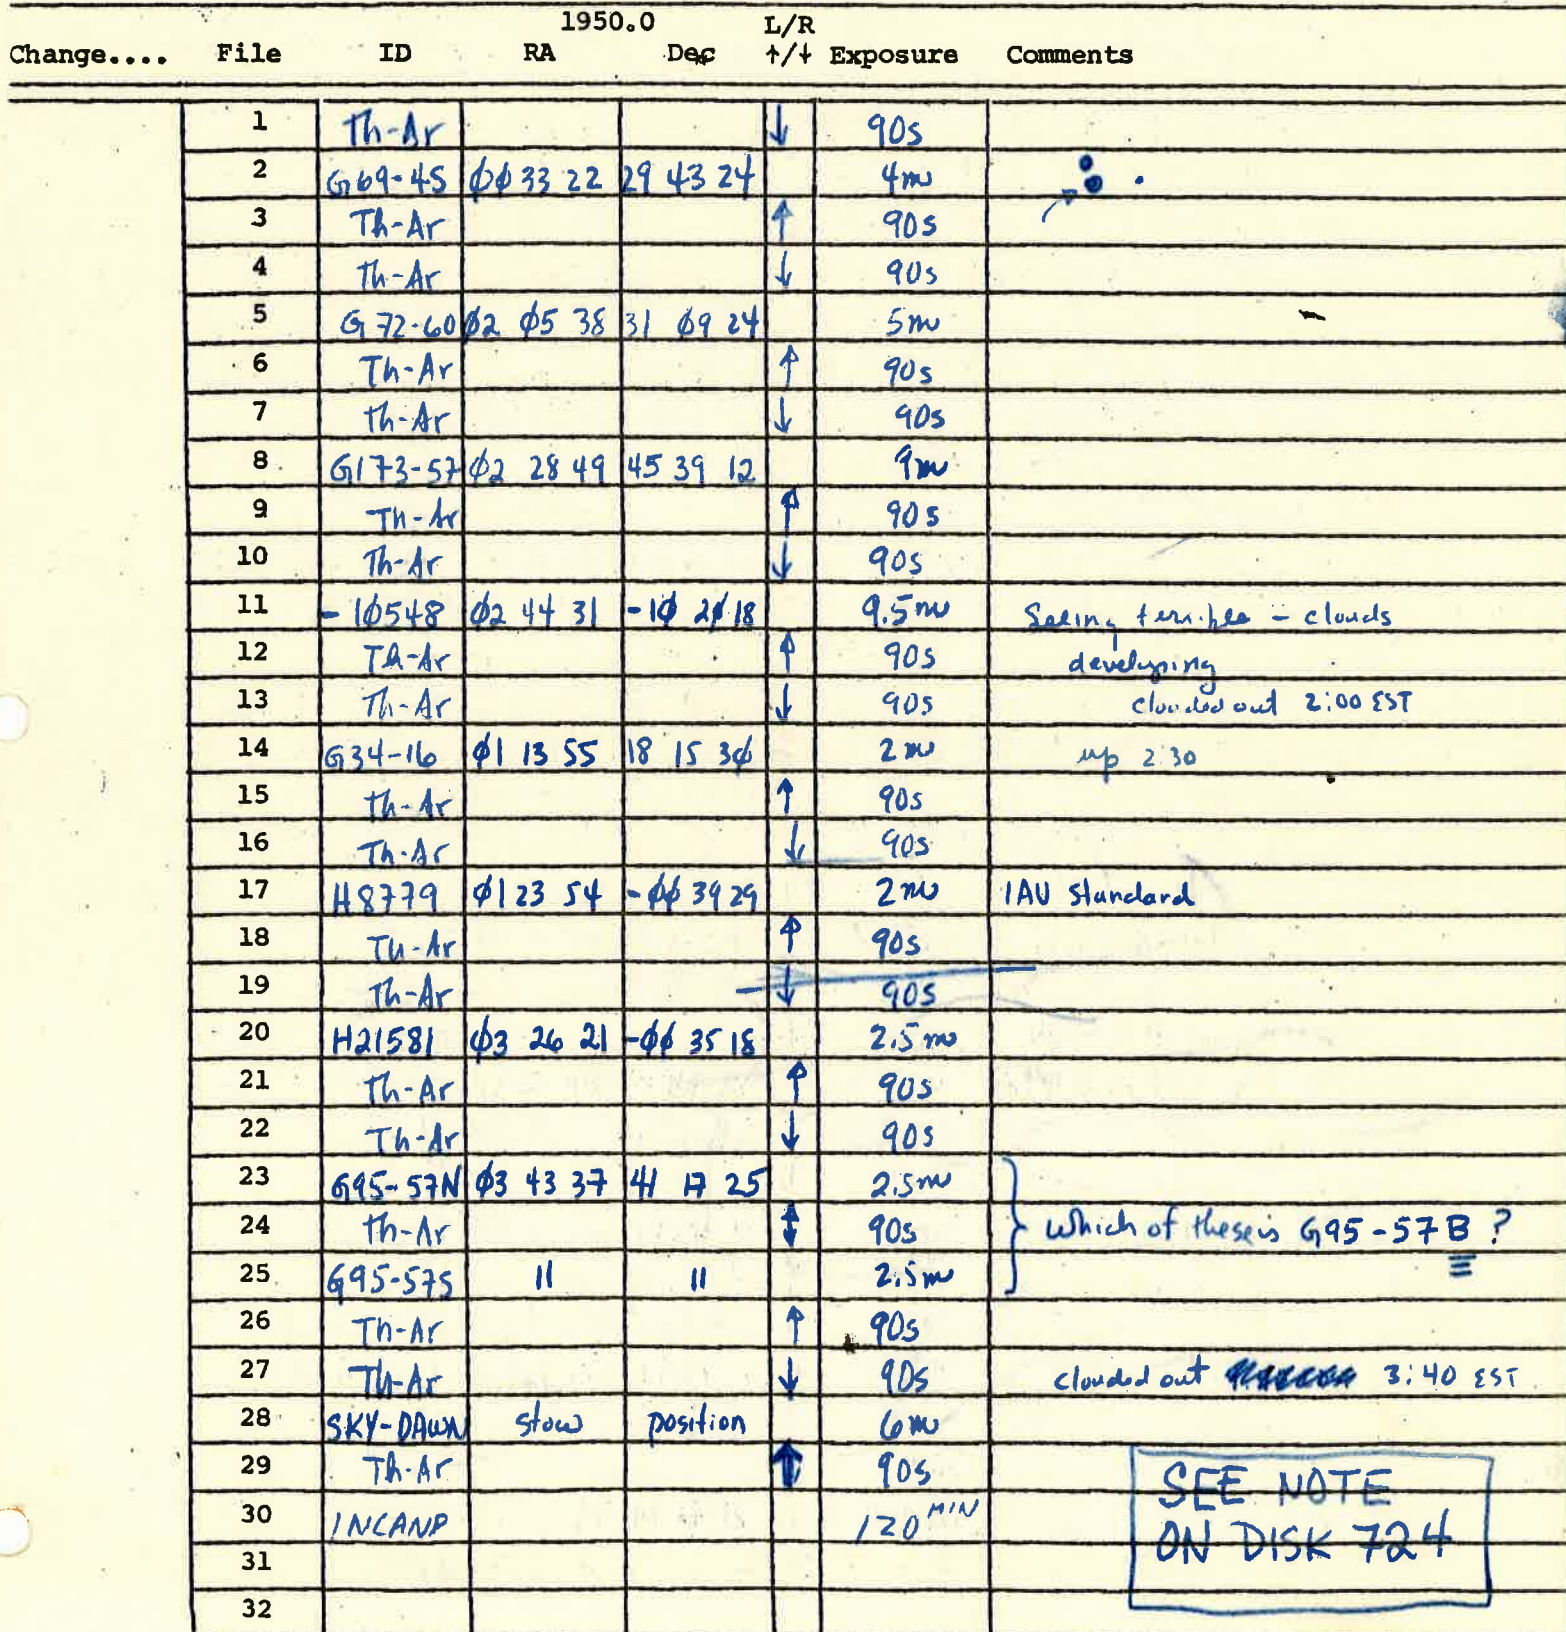 1950.0 L/R
Change.... File ID RA Dec ↑/↓ Exposure Comments
1 Th-Ar ↓ 90s
2 G69-4S φφ 33 22 29 43 24 4m
3 Th-Ar ↑ 90s
4 Th-Ar ↓ 90s
5 G72-60 φ2 φ5 38 31 φ9 24 5m
6 Th-Ar ↑ 90s
7 Th-Ar ↓ 90s
8 G173-57 φ2 28 49 45 39 12 9m
9 Th-Ar ↑ 90s
10 Th-Ar ↓ 90s
11 -1φ548 φ2 44 31 -1φ 2φ 18 9.5m Seeing terrible - clouds
12 Th-Ar ↑ 90s developing
13 Th-Ar ↓ 90s clouded out 2:00 EST
14 G34-16 φ1 13 55 18 15 3φ 2m up 2:30
15 Th-Ar ↑ 90s
16 Th-Ar ↓ 90s
17 H8779 φ1 23 54 -φφ 39 29 2m IAU Standard
18 Th-Ar ↑ 90s
19 Th-Ar ↓ 90s
20 H21581 φ3 26 21 -φφ 35 18 2.5m
21 Th-Ar ↑ 90s
22 Th-Ar ↓ 90s
23 G95-57N φ3 43 37 41 17 25 2.5m
24 Th-Ar ↕ 90s Which of these is G95-57B ?
25 G95-57S " " 2.5m
26 Th-Ar ↑ 90s
27 Th-Ar ↓ 90s clouded out 3:40 EST
28 SKY-DAWN stow position 6m
29 Th-Ar ↑ 90s
SEE NOTE
30 INCAND 120 MIN
ON DISK 724
31
32